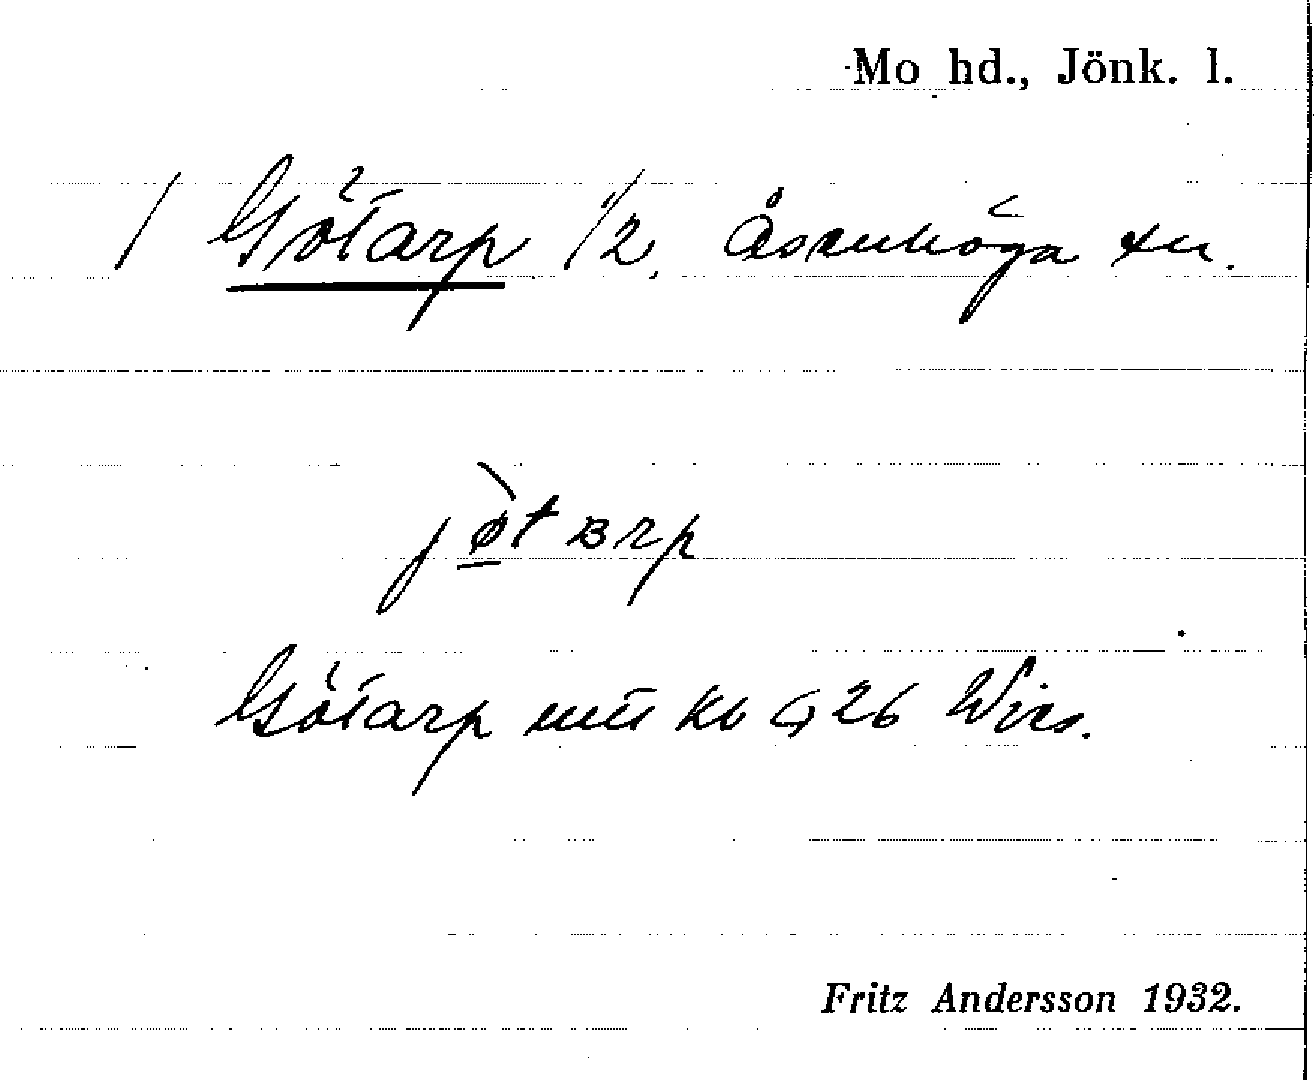 Mo hd., Jönk. l.
/ Götarp 1/2, Åsenhöga sn.
jøtarp
Götarp mtl kb 26 Wirs.
Fritz Andersson 1932.